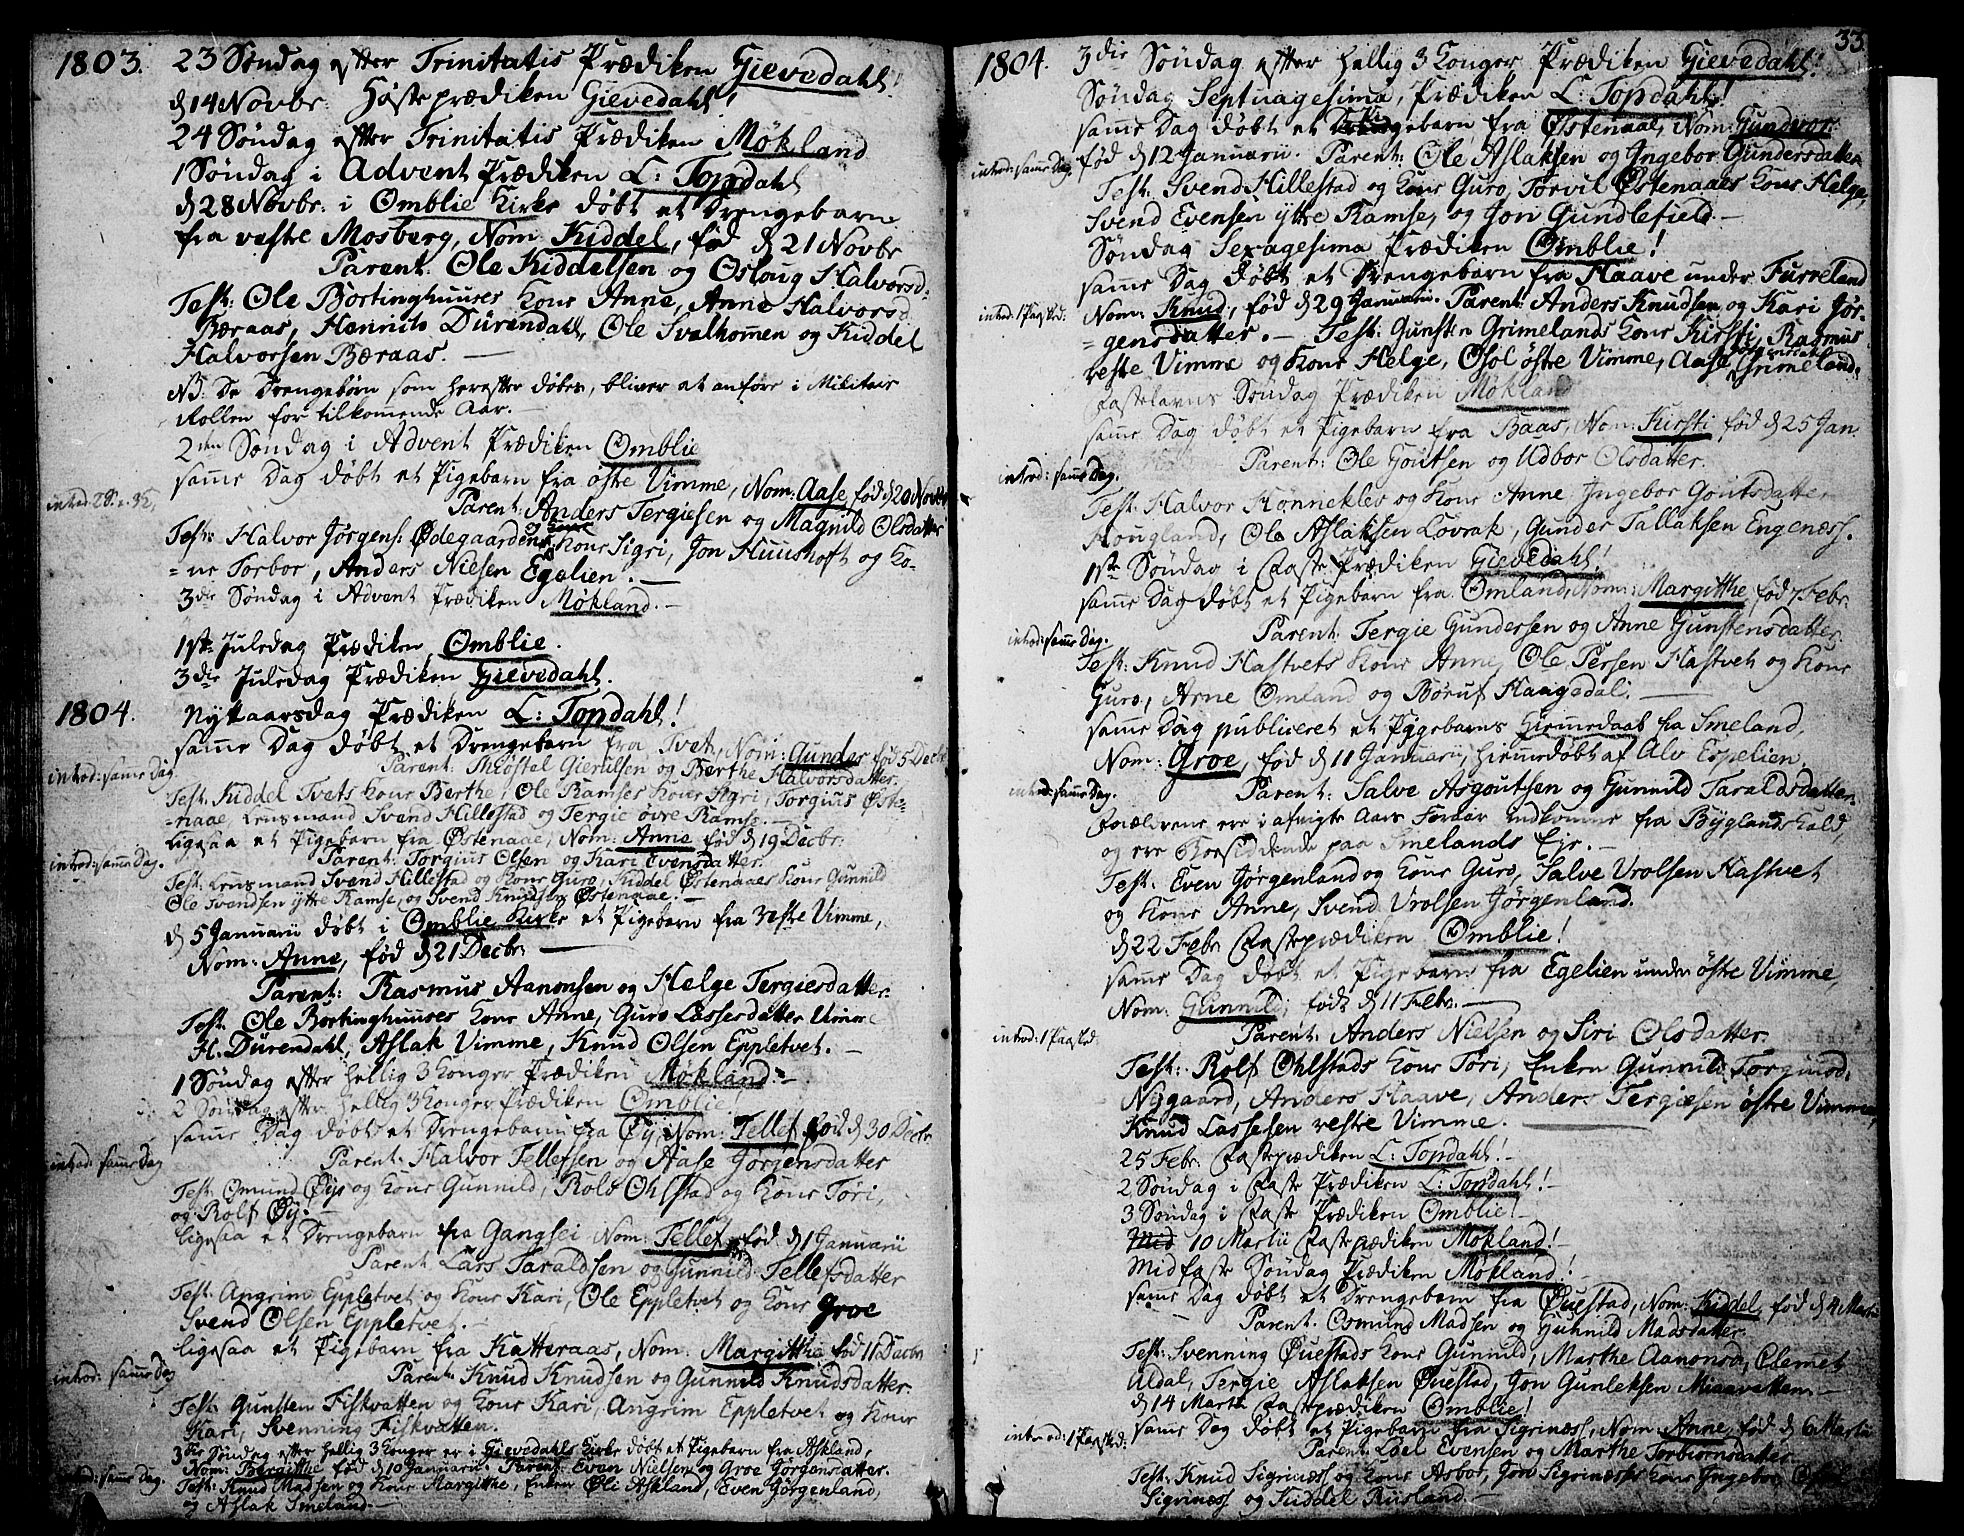 1803. 23 Søndag efter Trinitatis Prædiken Gievedahl!
d 14 Novbr: Høsteprædiken Gievedahl!
24 Søndag efter Trinitatis Prædiken Møkland
1 Søndag i Advent Prædiken L: Topdahl
d 28 Novbr: i Omblie Kirke døbt et Drengebarn
fra vestre Mosberg, Nom: Kiddel, fød d 21 Novbr
Parent: Ole Kiddelsen og Osloug Halvorsd:
Test: Ole Bortinghuuses Kone Anne, Anne Halvorsd
Bæraas, Dürendahl, Ole Tvalhomen og Kiddel
Halvorsen Bæraas. —
NB: De Drengebørn som herefter døbes, bliver at anføre i Militair
Rollen for tilkomende Aar. —
2den Søndag i Advent Prædiken Omblie
samme Dag døbt et Pigebarn fra østre Vimme, Nom: Aase, fød d 20 Novbr
Parent: Anders Tergiesen og Magnild Olsdatter
Test: Halvor Jørgens: Ødegaarden Kone Sigri, Jon Huushoft og Ko-
=ne Torbor, Anders Nielsen Egelien. —
3die Søndag i Advent Prædiken Møkland. —
1ste Juledag Prædiken Omblie.
3die Juledag Prædiken Gievedahl.
1804. Nyttaarsdag Prædiken L: Topdahl!
samme Dag døbt et Drengebarn fra Tvet, Nom: Gunder fød 5 Decbr
introd: samme Dag
Parent: Thrøstel Gierulsen og Berthe Halvorsdatter.
Test: Kiddel Tvets Kone Berthe, Ole Ramses Kone Sigri, Torgius Øste-
=naae, Lensmand Svend Hillestad og Tergie øvre Ramse. —
ligesaa et Pigebarn fra Østenaae, Nom: Anne fød d 19 Decbr:
introd: samme Dag.
Parent: Torgius Olsen og Kari Evensdatter.
Test: Lensmand Svend Hillestad og Kone Guro, Kiddel Østenaaes Kone Gunnild
Ole Svendsen ytre Ramse, og Svend Knudsen Østenaae. —
d 5 Januarii døbt i Omblie Kirke et Pigebarn fra vestre Vimme,
Nom: Anne, fød d 21 Decbr: —
Parent: Rasmus Aanonsen og Helge Tergiesdatter.
Test: Ole Bortinghuuses Kone Anne, Guro Lassesdatter Vimme
H. Dürendahl, Aslak Vimme, Knud Olsen Eppletvet. —
1 Søndag efter hellig 3 Konger Prædiken Møkland. —
2 Søndag efter hellig 3 Konger Prædiken Omblie!
samme Dag døbt et Drengebarn fra Øy, Nom: Tellef, fød d 30 Decbr
introd: samme Dag
Parent: Halvor Tellefsen og Aase Jørgensdatter
Test: Omund Øys og Kone Gunnild, Rolf Ohlstad og Kone Tøri,
og Rolf Øy. —
ligesaa et Drengebarn fra Gangsei Nom: Tellef, fød d 1 Januarii
Parent Lars Taraldsen og Gunnild Tellefsdatter
Test: Angrim Eppletvet og Kone Kari, Ole Eppletvet og Kone Groe
Svend Olsen Eppletvet. —
ligesaa et Pigebarn fra Katteraas, Nom: Margitthe fød 11 Decbr
introd: samme Dag
Parent: Knud Knudsen og Gunnild Knudsdatter.
Test: Gunsten Fiskvatten og Kone Kari, Angrim Eppletvet og Kone
Kari, Svenning Fiskvatten.
3die Søndag efter hellig 3 Konger er i Gievedahls Kirke døbt et Pigebarn fra Askland,
Nom: Bergitthe, fød d 10 Januarii. Parent: Even Nielsen og Groe Jørgensdatter.
introd: samme Dag.
Test: Knud Madsen og Kone Margitthe, Enken Øli Askland, Even Jørgenland,
og Aslak Smeland. —
33.
1804. 3die Søndag efter hellig 3 Konger Prædiken Gievedahl!
Søndag Septuagesima, Prædiken L: Topdahl!
samme Dag døbt et Pigebarn fra Østenaae, Nom: Gunder
introd: samme Dag
fød d 12 Januarii. Parent: Ole Aslaksen og Ingebor Gundersdatter
Test: Svend Hillestad og Kone Guro, Torvil Østenaaes Kone Helge,
Svend Evensen ytre Ramse, og Jon Gundlefield. —
Søndag Sexagesima Prædiken Omblie!
samme Dag døbt et Drengebarn fra Haave under Furreland
introd: 1 Paaskd:
Nom: Knud, fød d 29 Januarii. Parent: Anders Knudsen og Kari Jør-
=gensdatter. — Test: Gunsten Grimelands Kone Kirsti, Rasmus
vestre Vimme og Kone Helge, Osol østre Vimme, Aase Grimeland.
Fastelavns Søndag Prædiken Møkland
samme Dag døbt et Pigebarn fra Baas, Nom: Kirsti fød d 25 Jan.
Parent: Ole Goutsen og Udbor Olsdatter.
introd: samme Dag.
Test: Halvor Hønneklev og Kone Anne Ingebor Goutsdatter
Hougland, Ole Aslaksen Lovrak, Gunder Tallaksen Engenæss.
1ste Søndag i Faste Prædiken Gievedahl!
samme Dag døbt et Pigebarn fra Omland, Nom: Margitthe, fød 7 Febr.
Parent: Tergie Gundersen og Anne Gunstensdatter.
introd: samme Dag.
Test: Knud Hastvets Kone Anne, Ole Persen Hastvet og Kone
Guro, Arne Omland og Børuf Haagedali. —
samme Dag publiceret et Pigebarns Hiemmedaab fra Smeland,
Nom: Groe, fød d 11 Januarii, hiemmedøbt af Alv Espelien.
introd: samme Dag.
Parent: Salve Asgoutsen og Gunnild Taraldsdatter.
Forældrene ere i afvigte Aars Foraar indkomne fra Byglands Kald
og ere boesiddende paa Smelands Eje. —
Test: Even Jørgenland og Kone Guro, Salve Vrolsen Hastvet
og Kone Anne, Svend Vrolsen Jørgenland.
d 22 Febr: Fasteprædiken Omblie!
samme Dag døbt et Pigebarn fra Egelien under østre Vimme,
Nom: Gunnild, født d 11 Febr: —
introd: 1 Paaskd:
Parent: Anders Nielsen og Siri Olsdatter.
Test: Rolf Ohlstads Kone Tøri, Enken Gunnild Torgiusd:
Nygaard, Anders Haave, Anders Tergiesen østre Vimme,
Knud Lassesen vestre Vimme. —
25 Febr: Fasteprædiken L: Topdahl! —
2 Søndag i Faste Prædiken L: Topdahl! —
3 Søndag i Faste Prædiken Omblie! —
Mid 10 Martii Fasteprædiken Møkland! —
Midfaste Søndag Prædiken Møkland! —
samme Dag døbt et Drengebarn fra Øuestad, Nom: Kiddel, fød d 4 Martii
Parent: Osmund Madsen og Gunnild Madsdatter.
Test: Svenning Øuestads Kone Gunnild, Marthe Aanonsd, Clemet
Uldal, Tergie Aslaksen Øuestad, Jon Gunleksen Miaavatten. —
d 14 Martii Fasteprædiken Omblie!
samme Dag døbt et Pigebarn fra Sigrinæss, Nom: Anne, fød d 6 Martii
introd: 1 Paaskd:
Parent: Loel Evensen og Marthe Torbiornsdatter
Test: Knud Sigrinæss og Kone Asbor, Jon Sigrinæsses Kone Ingebor,
Sigrinæss og Kiddel Riisland. —